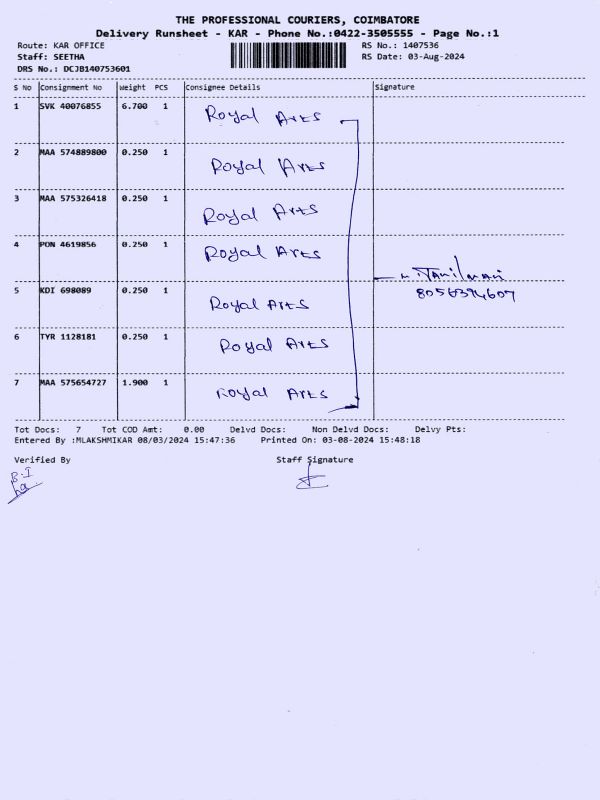 THE PROFESSIONAL COURIERS, COIMBATORE
Delivery Runsheet - KAR - Phone No.:0422-3505555 - Page No.:1
Route: KAR OFFICE RS No.: 1407536
Staff: SEETHA RS Date: 03-Aug-2024
DRS No.: DCJB140753601
S No Consignment No Weight PCS Consignee Details Signature
1 SVK 40076855 6.700 1 Royal Arts
2 MAA 574889800 0.250 1 Royal Arts
3 MAA 575326418 0.250 1 Royal Arts
4 PON 4619856 0.250 1 Royal Arts
8056394607
5 KDI 698089 0.250 1 Royal Arts
6 TYR 1128181 0.250 1 Royal Arts
7 MAA 575654727 1.900 1 Royal Arts
Tot Docs: 7 Tot COD Amt: 0.00 Delvd Docs: Non Delvd Docs: Delvy Pts:
Entered By :MLAKSHMIKAR 08/03/2024 15:47:36 Printed On: 03-08-2024 15:48:18
Verified By Staff Signature